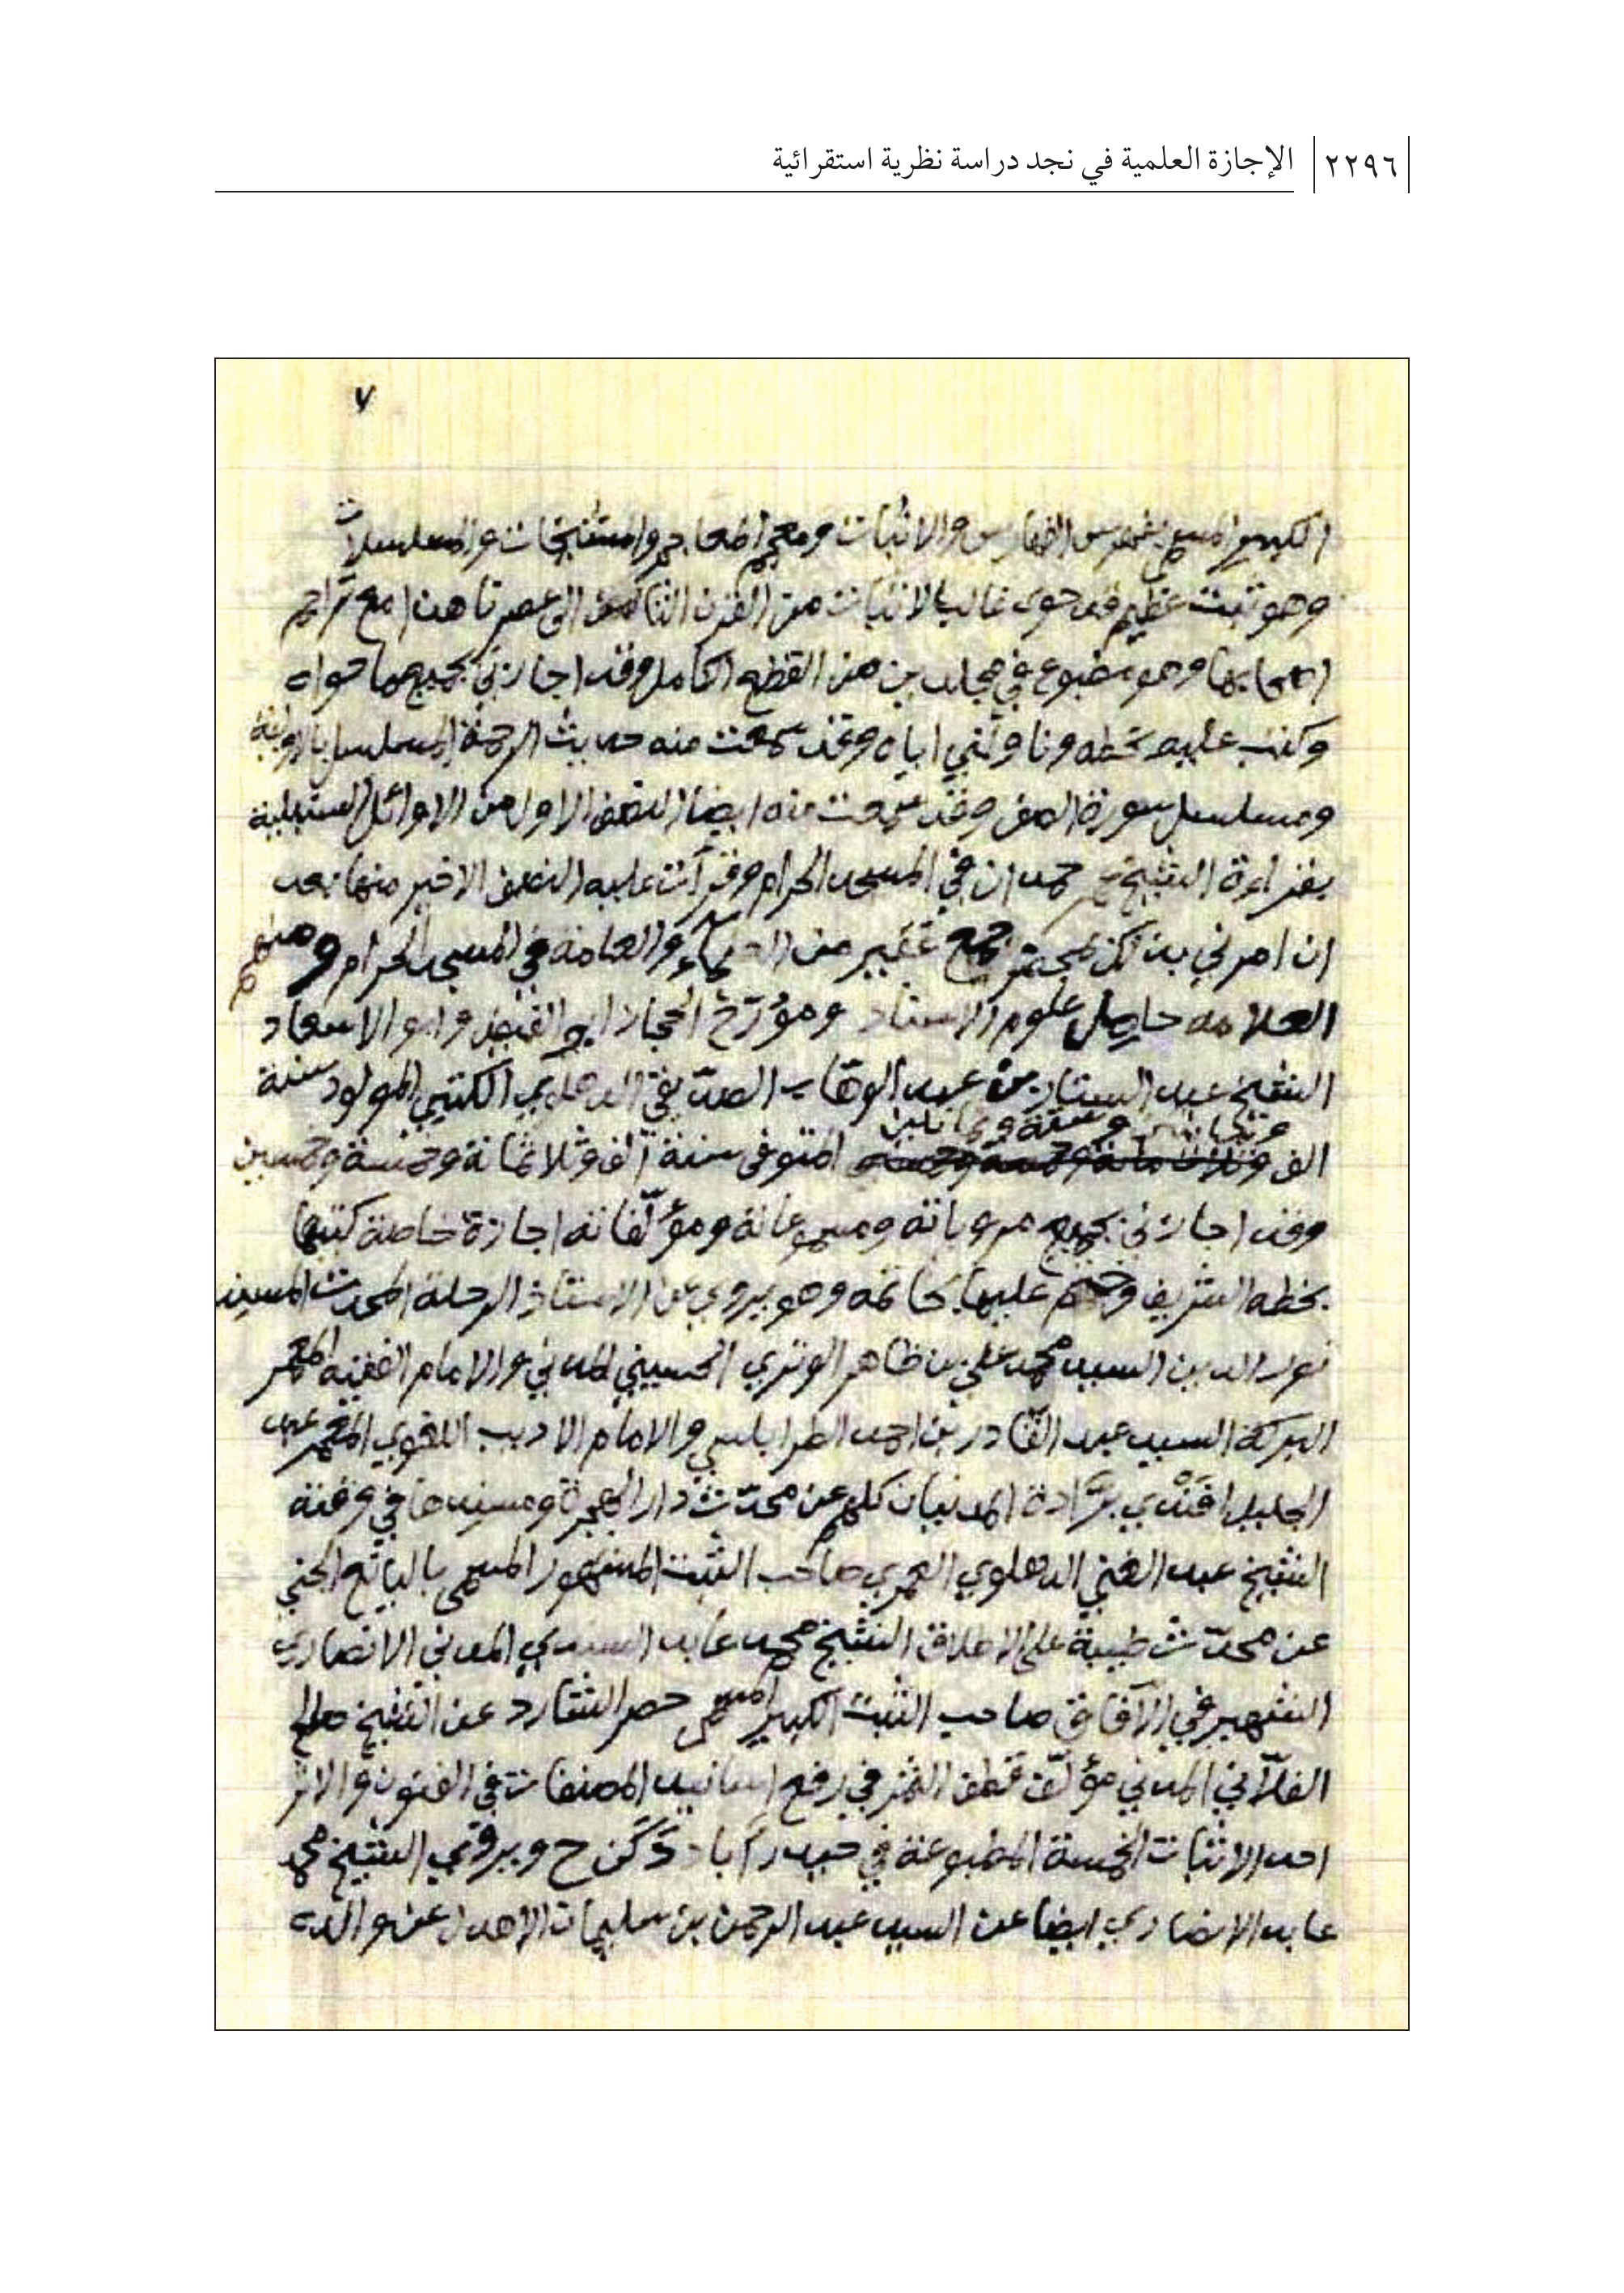 ٢٢٩٦ الإجازة العلمية في نجد دراسة نظرية استقرائية
٧
الكبير المسمى بفهرس الفهارس والاثبات ومعجم المعاجم والمشيخات والمسلسلات
وهو ثبت عظيم قد حوى غالب الاثبات من القرن التاسع الى عصرنا هذا مع تراجم
اصحابها وهو مطبوع في مجلدين من القطع الكامل وقد اجازني بجميع ما حواه
وكتب عليه بخطه وناولني اياه وقد سمعت منه حديث الرحمة المسلسل بالاولية
ومسلسل سورة الصف وقد سمعت منه ايضا النصف الاول من الاوائل السنبلية
بقراءة الشيخ حمدان في المسجد الحرام وقرأت عليه النصف الاخير منها بعد
ان امرني بذلك بمحضر جمع غفير من العلماء والعامة في المسجد الحرام ومنهم
العلامه حاصل علوم الاسناد ومؤرّخ الحجاز ابو الفيض وابو الاسعاد
الشيخ عبد الستار بن عبد الوهاب الصدّيقي الدهلوي الكتبي المولود سنة
ومئتين وستة وثمانين
الف المتوفى سنة الف وثلاثمائة وخمسة وخمسين
وقد اجازني بجميع مروياته ومسموعاته ومؤلّفاته اجازة خاصة كتبها
بخطه الشريف وختم عليها بخاتمه وهو يروي عن الاستاذ الرحلة المحدث المسند
نور الدين السيد محمد علي بن ظاهر الوتري الحسيني المدني والامام الفقيه المعمر
البركة السيد عبد القادر بن احمد الطرابلسي والامام الاديب اللغوي المعمر عبد
الجليل افندي برّادة المدنيان كلهم عن محدّث دار الهجرة ومسندها في وقته
الشيخ عبد الغني الدهلوي العمري صاحب الثبت المشهور المسمى باليانع الجني
عن محدّث طيبة على الاطلاق الشيخ محمد عابد السندي المدني الانصاري
الشهير في الآفاق صاحب الثبت الكبير المسمى حصر الشارد عن الشيخ صالح
الفلاّني المدني مؤلّف قطف الثمر في رفع اسانيد المصنفات في الفنون والاثر
احد الاثبات الخمسة المطبوعة في حيدرآباد دَكَن ح ويروي الشيخ محمد
عابد الانصاري ايضا عن السيد عبد الرحمن بن سليمان الاهدل عن والده